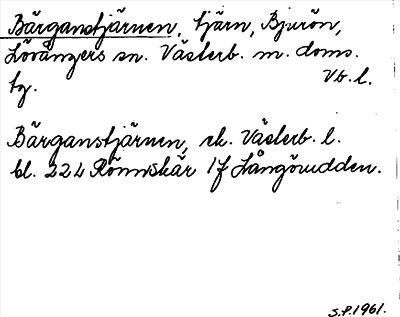 Bärganstjärnen, tjärn, Bjurön,
Lövångers sn. Västerb. m. doms.
tg. Vb. l.
Bärganstjärnen, ek. Västerb. l.
bl. 224 Rönnskär 1f Långörudden.
S.P. 1961.